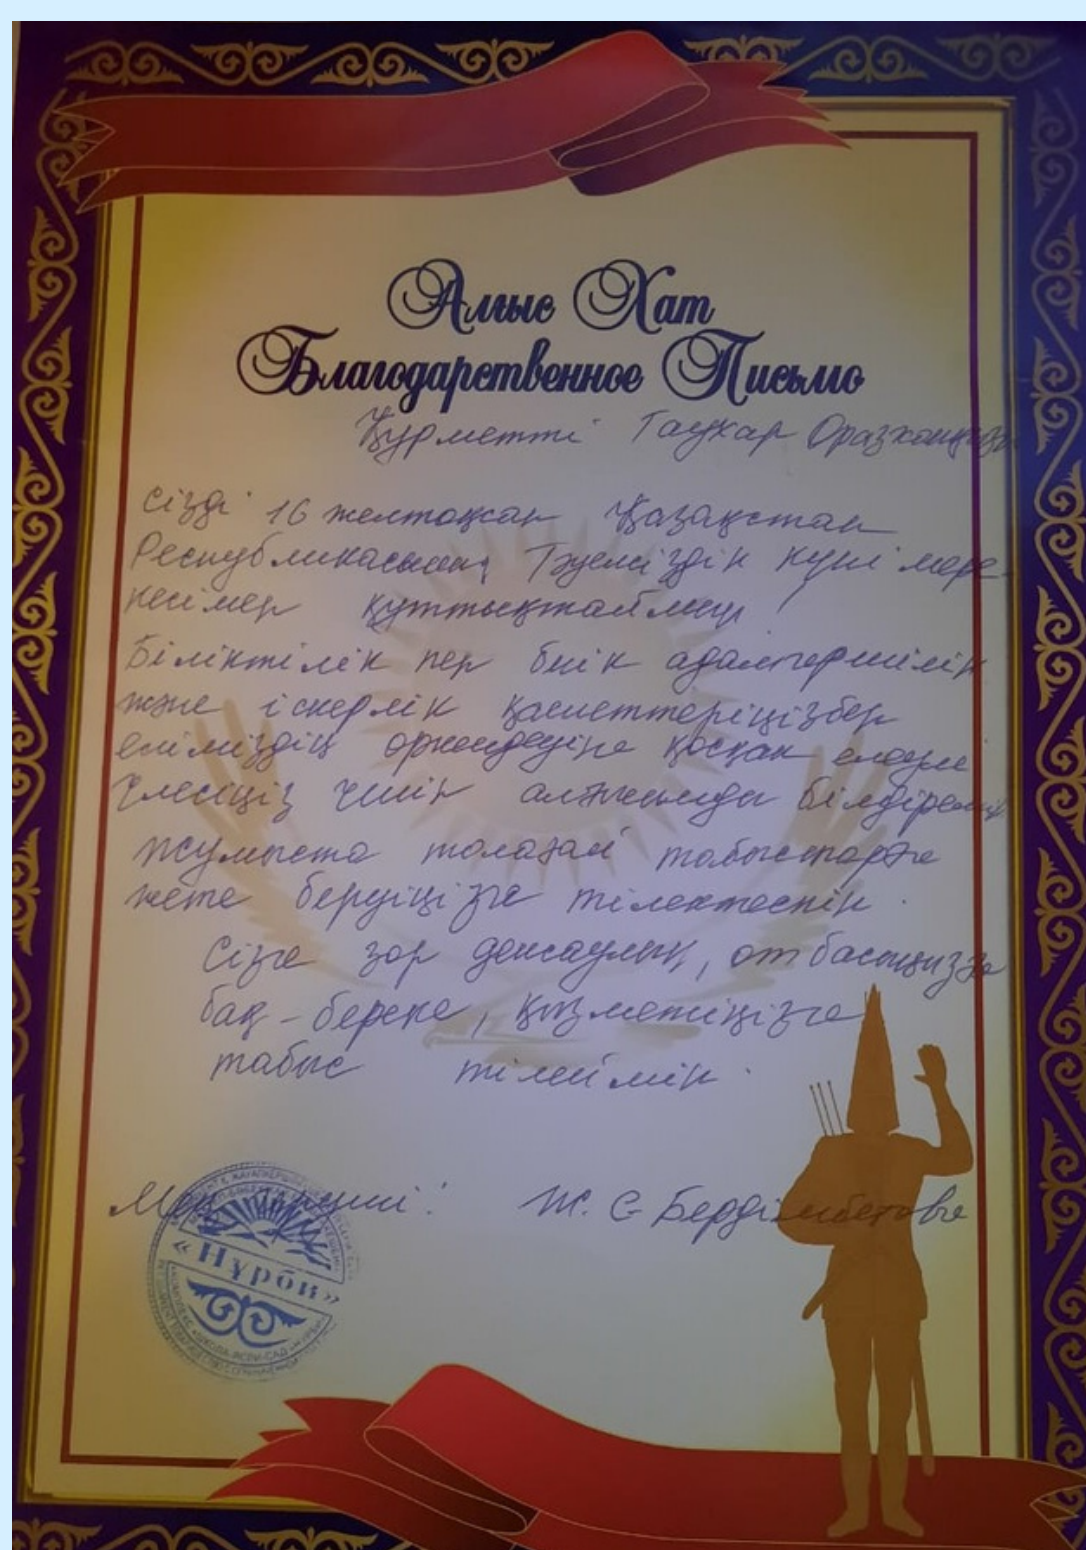 Алғыс Хат
Благодарственное Письмо
Құрметті Гаухар Оразханқызы
Сізді 16 желтоқсан Қазақстан
Республикасының Тәуелсіздік күні мере-
кесімен құттықтаймын!
Біліктілік пен биік адамгершілік
және іскерлік қасиеттеріңізбен
еліміздің өркендеуіне қосқан елеулі
үлесіңіз үшін алғысымды білдіремін
Жұмыста толағай табыстарға
жете беруіңізге тілектеспін.
Сізге зор денсаулық, отбасыңызға
бақ-береке, қызметіңізге
табыс тілеймін.
Ж. С Бердімбетова
«Нұрби»